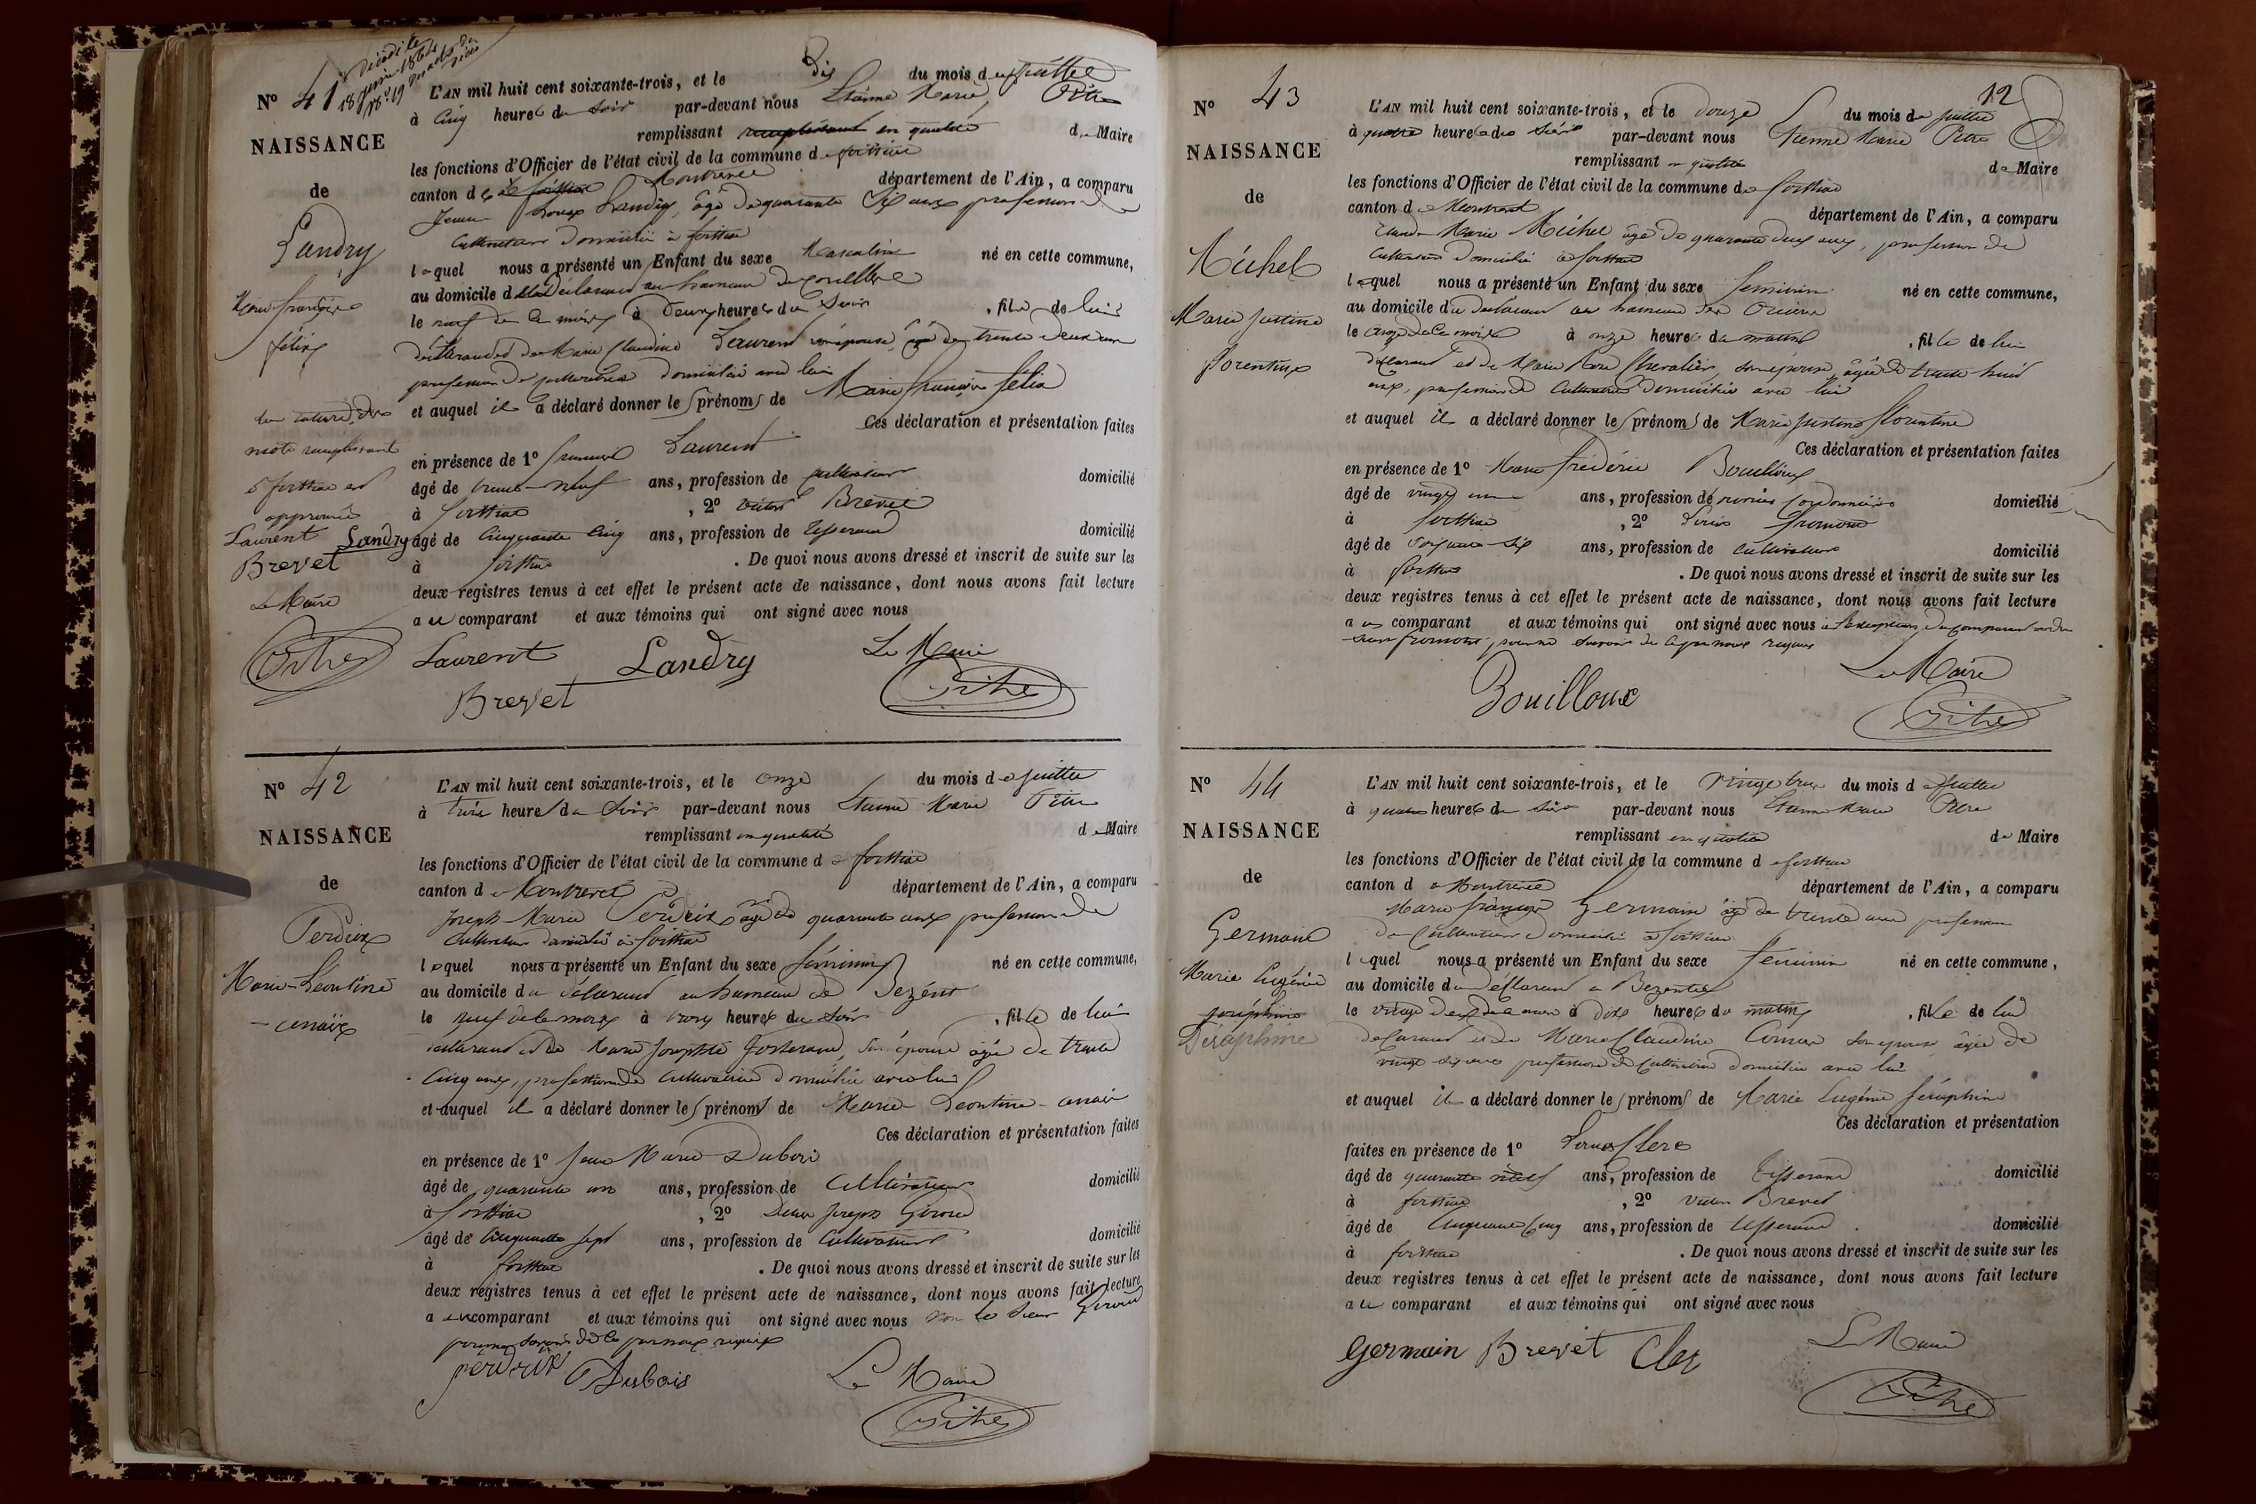 N° 41
NAISSANCE
de
Landry
Marie françoise
félix
L'AN mil huit cent soixante-trois, et le dix du mois de juillet
à cinq heures du soir par-devant nous Etienne Marie Pitre
remplissant en qualité de Maire
les fonctions d'Officier de l'état civil de la commune de foissiat
canton de Montrevel département de l'Ain, a comparu
Landry, âgé de quarante six ans profession de
Cultivateur domicilié à foissiat
lequel nous a présenté un Enfant du sexe Masculin né en cette commune,
au domicile du déclarant au hameau de
le neuf de ce mois à deux heures du soir, fils de lui
déclarant et de Marie Claudine Laurent son épouse, âgée de trente deux ans
profession de cultivatrice domiciliée avec lui
et auquel il a déclaré donner les prénoms de Marie françois félix
Ces déclaration et présentation faites
en présence de 1° Laurent
âgé de trente-neuf ans, profession de cultivateur domicilié
à foissiat, 2° Victor Brevet
âgé de Cinquante Cinq ans, profession de tisserand domicilié
à foissiat. De quoi nous avons dressé et inscrit de suite sur les
deux registres tenus à cet effet le présent acte de naissance, dont nous avons fait lecture
au comparant et aux témoins qui ont signé avec nous
mots remplissant
approuvés
Laurent Landry
Brevet
Le Maire
Pitre
Laurent Landry Le Maire
Brevet Pitre
N° 42
NAISSANCE
de
Perdrix
Marie-Léontine
L'AN mil huit cent soixante-trois, et le onze du mois de juillet
à trois heures du soir par-devant nous Etienne Marie Pitre
remplissant en qualité de Maire
les fonctions d'Officier de l'état civil de la commune de foissiat
canton de Montrevel département de l'Ain, a comparu
Joseph Marie Perdrix âgé de quarante ans profession de
Cultivateur domicilié à foissiat
lequel nous a présenté un Enfant du sexe féminin né en cette commune,
au domicile du déclarant au hameau de
le neuf de ce mois à heures du soir, fille de lui
déclarant et de Marie Josephte son épouse âgée de trente
Cinq ans, profession de Cultivatrice domiciliée avec lui
et auquel il a déclaré donner les prénoms de Marie Léontine
Ces déclaration et présentation faites
en présence de 1° Jean Marie Dubois
âgé de quarante un ans, profession de Cultivateur domicilié
à foissiat, 2° Joseph
âgé de Cinquante sept ans, profession de Cultivateur domicilié
à foissiat. De quoi nous avons dressé et inscrit de suite sur les
deux registres tenus à cet effet le présent acte de naissance, dont nous avons fait lecture
au comparant et aux témoins qui ont signé avec nous non le sieur
pour ne savoir de ce par nous requis
perdrix Dubois Le Maire
Pitre
12
N° 43
NAISSANCE
de
Michel
Marie justine
florentine
L'AN mil huit cent soixante-trois, et le douze du mois de juillet
à quatre heures du soir par-devant nous Etienne Marie Pitre
remplissant en qualité de Maire
les fonctions d'Officier de l'état civil de la commune de foissiat
canton de Montrevel département de l'Ain, a comparu
Claude Marie Michel âgé de quarante deux ans, profession de
Cultivateur domicilié à foissiat
lequel nous a présenté un Enfant du sexe féminin né en cette commune,
au domicile du déclarant au hameau des
le onze de ce mois à onze heures du matin, fille de lui
déclarant et de Marie Chevalier, son épouse, âgée de trente huit
ans, profession de Cultivatrice domiciliée avec lui
et auquel il a déclaré donner les prénoms de Marie justine florentine
Ces déclaration et présentation faites
en présence de 1° frédéric Bouilloux
âgé de vingt ans, profession de Cordonnier domicilié
à foissiat, 2° Louis fromont
âgé de soixante-six ans, profession de cultivateur domicilié
à foissiat. De quoi nous avons dressé et inscrit de suite sur les
deux registres tenus à cet effet le présent acte de naissance, dont nous avons fait lecture
au comparant et aux témoins qui ont signé avec nous à l'exception du comparant et du
sieur fromont, pour ne savoir de ce par nous requis
Le Maire
Bouilloux Pitre
N° 44
NAISSANCE
de
Germain
Marie Eugénie
joséphine
Séraphine
L'AN mil huit cent soixante-trois, et le vingt trois du mois de juillet
à quatre heures du soir par-devant nous Etienne Marie Pitre
remplissant en qualité de Maire
les fonctions d'Officier de l'état civil de la commune de foissiat
canton de Montrevel département de l'Ain, a comparu
Marie françois Germain âgé de trente ans profession
de Cultivateur domicilié à foissiat
lequel nous a présenté un Enfant du sexe féminin né en cette commune,
au domicile du déclarant à
le vingt deux de ce mois à dix heures du matin, fille de lui
déclarant et de Marie Claudine son épouse, âgée de
vingt six ans profession de Cultivatrice domiciliée avec lui
et auquel il a déclaré donner les prénoms de Marie Eugénie Séraphine
Ces déclaration et présentation
faites en présence de 1° Clerc
âgé de quarante neuf ans, profession de tisserand domicilié
à foissiat, 2° Victor Brevet
âgé de Cinquante Cinq ans, profession de tisserand domicilié
à foissiat. De quoi nous avons dressé et inscrit de suite sur les
deux registres tenus à cet effet le présent acte de naissance, dont nous avons fait lecture
au comparant et aux témoins qui ont signé avec nous
Germain Brevet Clerc Le Maire
Pitre